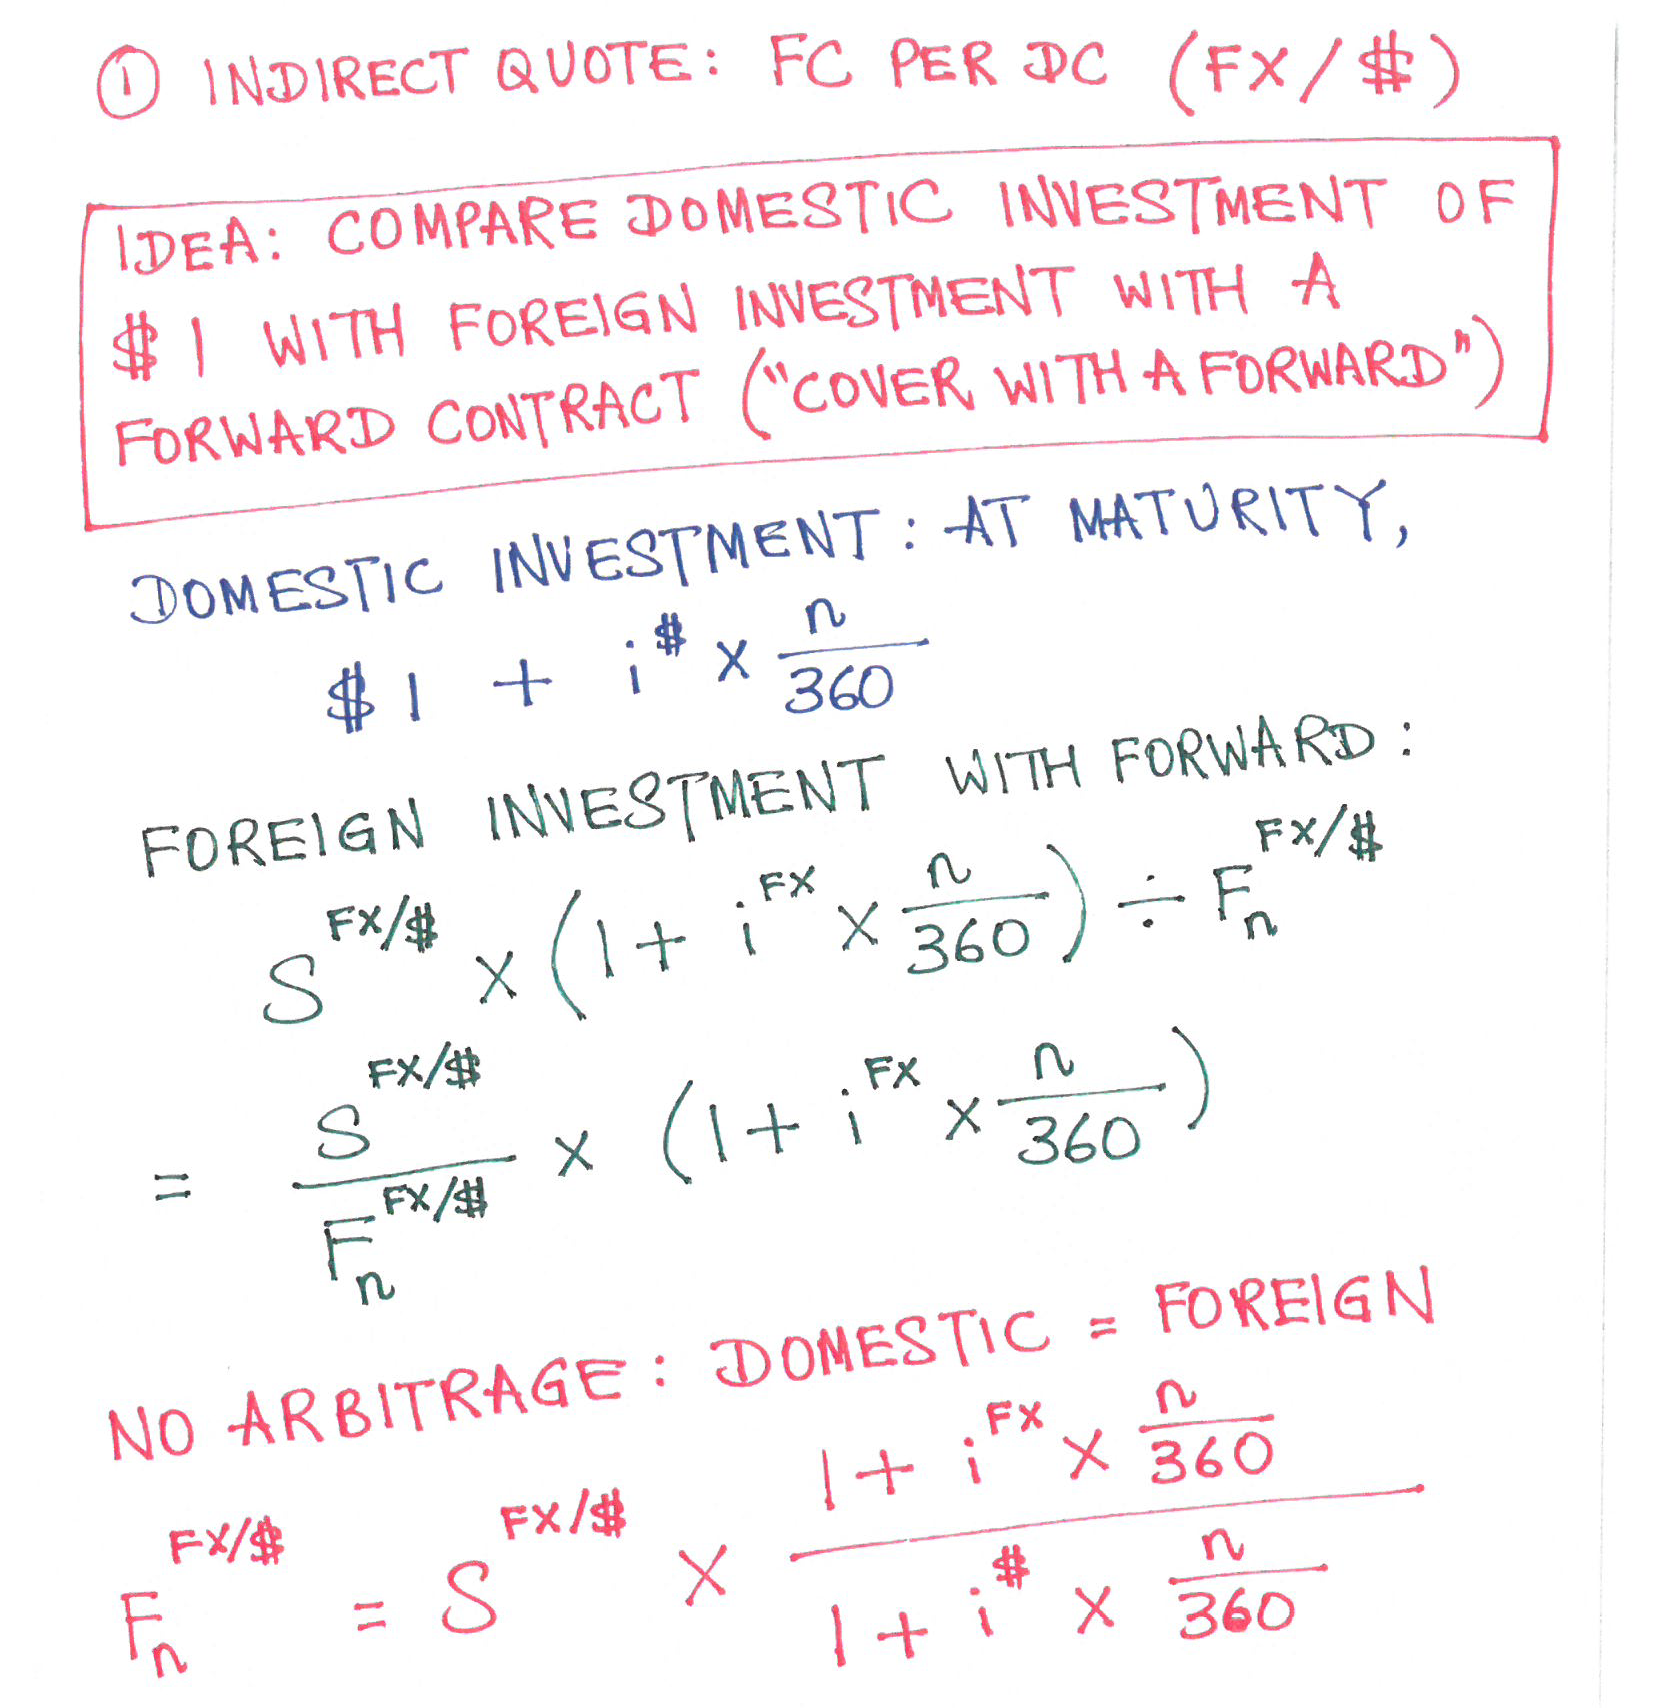 ① INDIRECT QUOTE: FC PER DC (FX/$)
IDEA: COMPARE DOMESTIC INVESTMENT OF
$1 WITH FOREIGN INVESTMENT WITH A
FORWARD CONTRACT ("COVER WITH A FORWARD")
DOMESTIC INVESTMENT: AT MATURITY,
$1 + i^$ × n/360
FOREIGN INVESTMENT WITH FORWARD:
S^FX/$ × (1 + i^FX × n/360) ÷ F_n^FX/$
= S^FX/$ / F_n^FX/$ × (1 + i^FX × n/360)
NO ARBITRAGE: DOMESTIC = FOREIGN
F_n^FX/$ = S^FX/$ × (1 + i^FX × n/360) / (1 + i^$ × n/360)